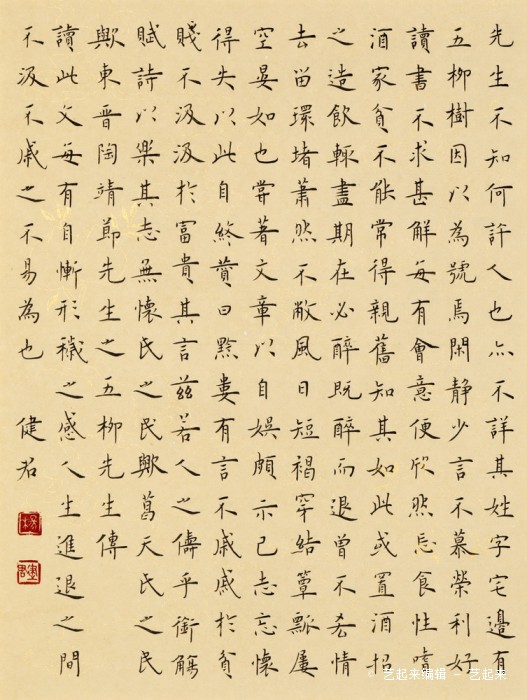 先生不知何許人也亦不詳其姓字宅邊有
五柳樹因以為號焉閑静少言不慕榮利好
讀書不求甚解每有會意便欣然忘食性嗜
酒家貧不能常得親舊知其如此或置酒招
之造飲輒盡期在必醉既醉而退曾不吝情
去留環堵蕭然不敝風日短褐穿結簞瓢屢
空晏如也嘗著文章以自娛頗示己志忘懷
得失以此自終贊曰黔婁有言不戚戚於貧
賤不汲汲於富貴其言茲若人之儔乎銜觴
賦詩以樂其志無懷氏之民歟葛天氏之民
歟東晉陶靖節先生之五柳先生傳
讀此文每有自慚形穢之感人生進退之間
不汲不戚之不易為也 健君
艺起来编辑 - 艺起来